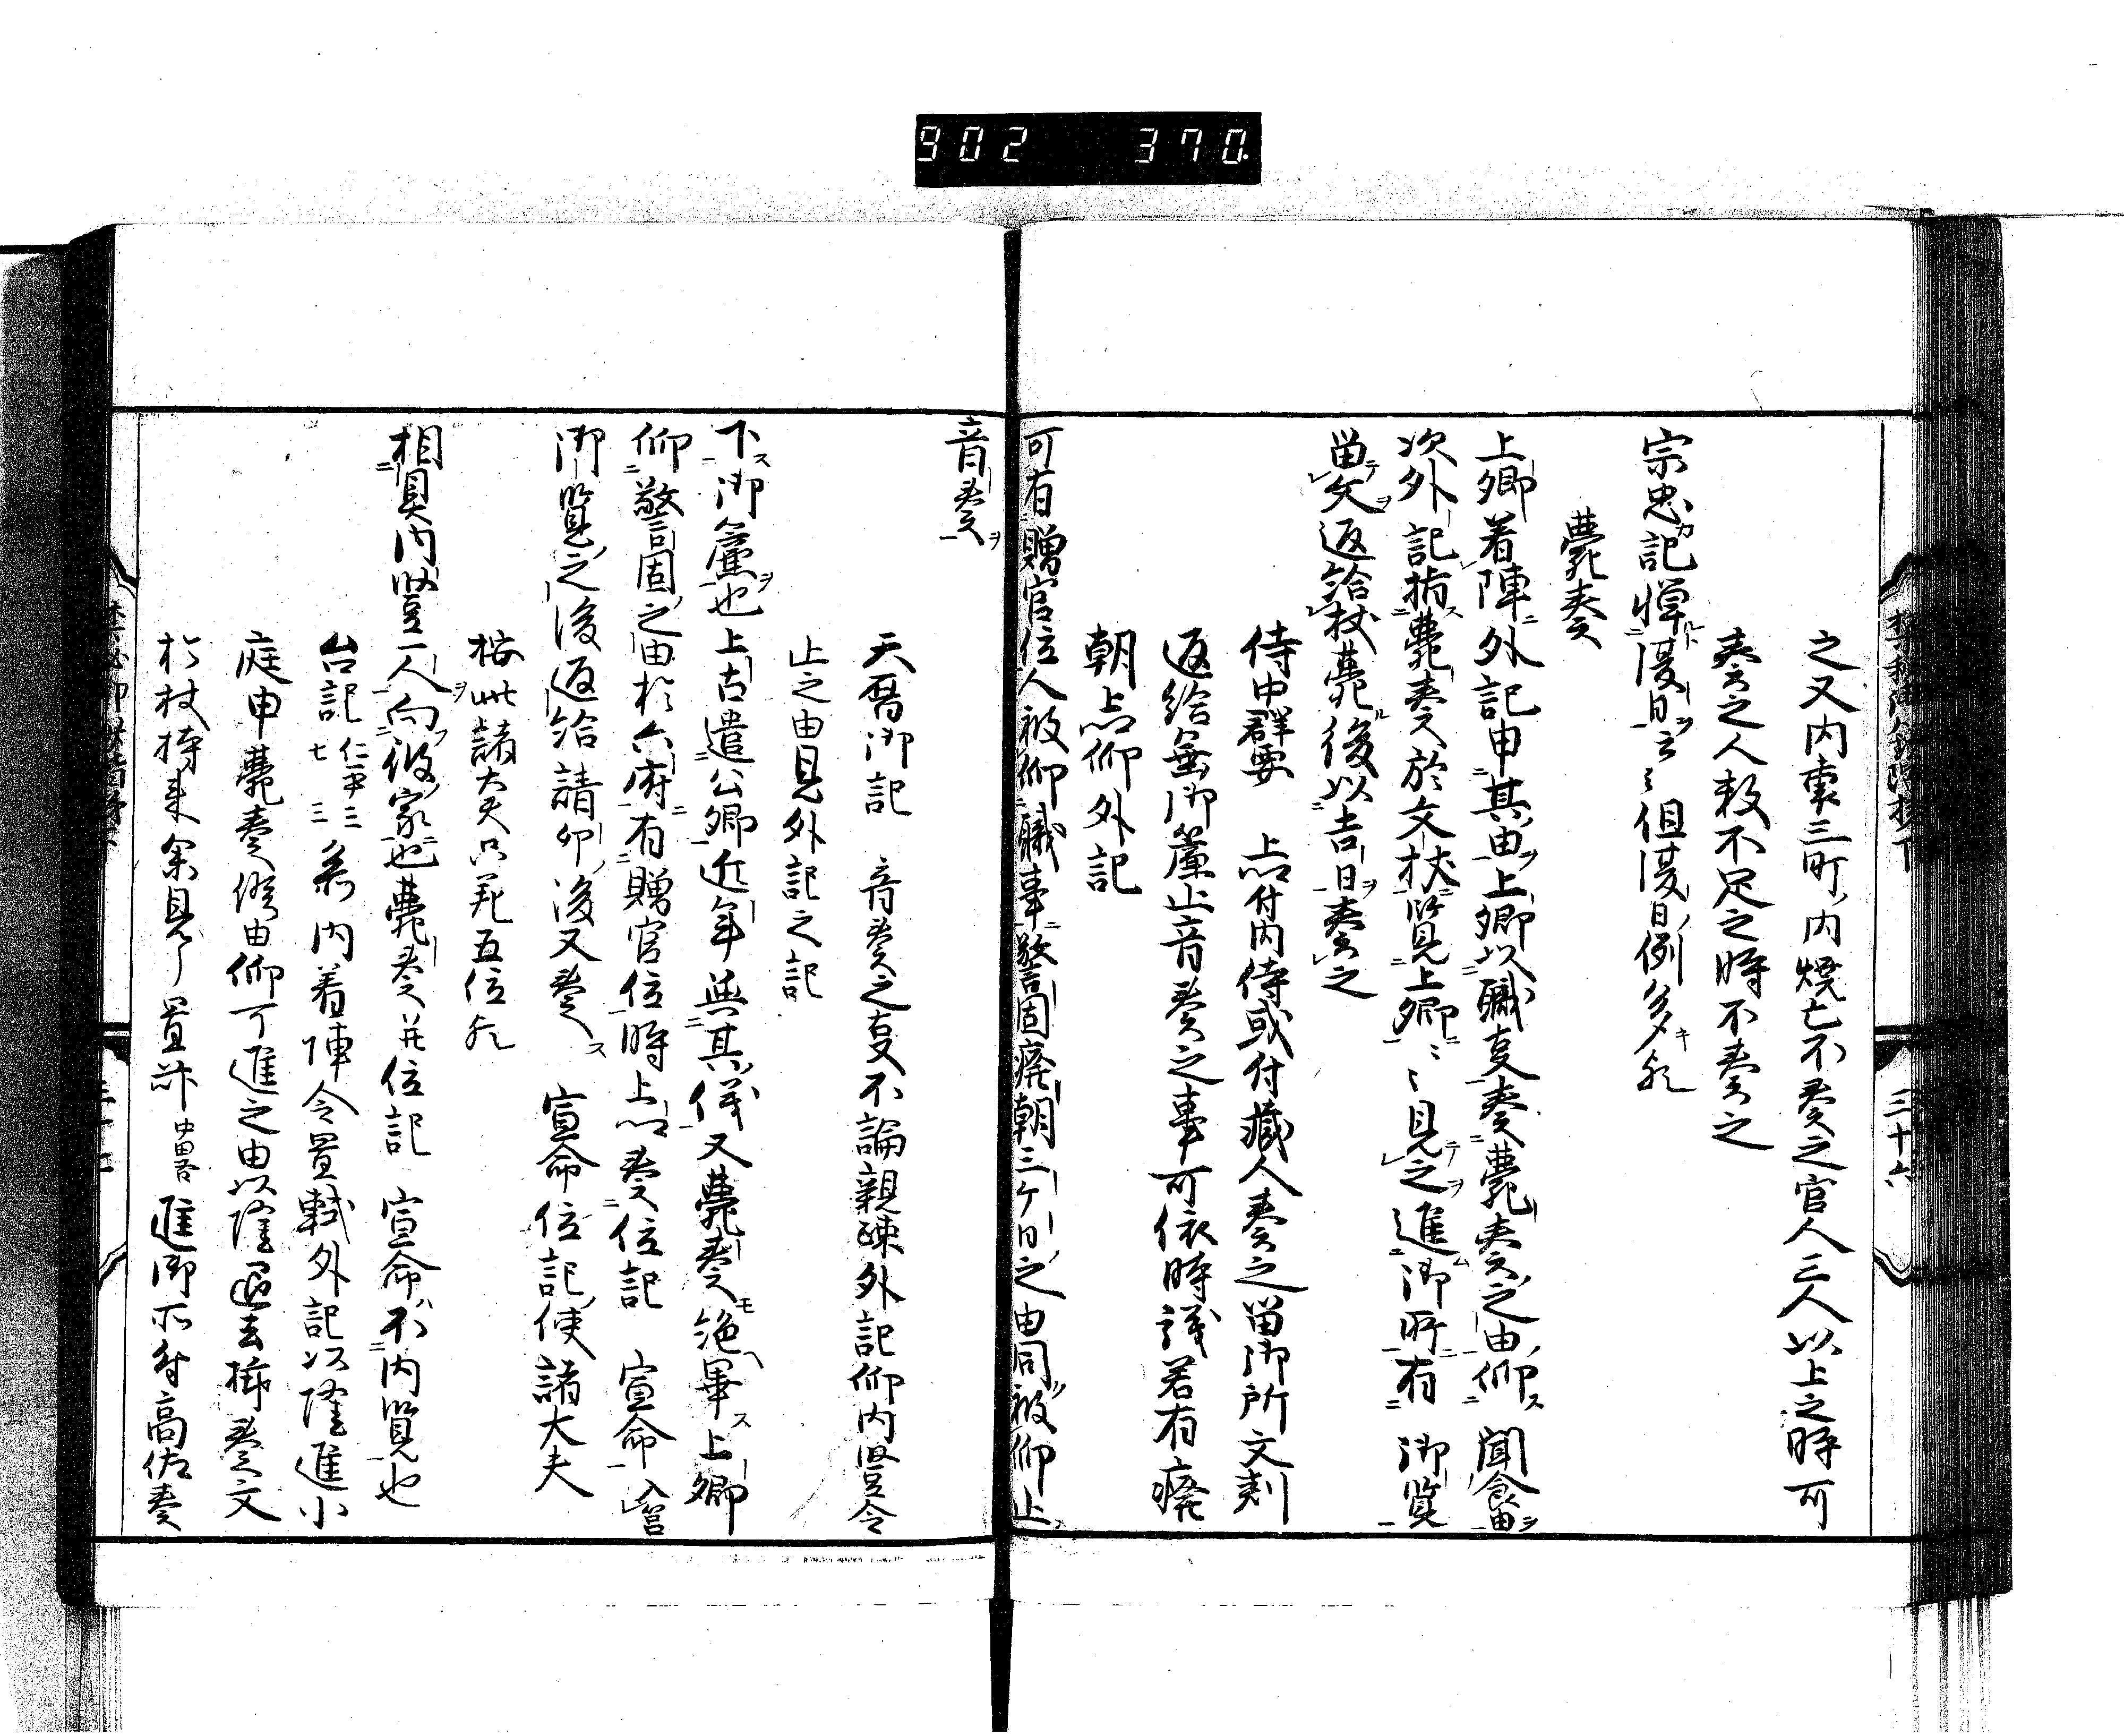 902 370
三十六
之又内裏三町内焼亡不奏之官人三人以上之時可
奏之人数不足之時不奏之
宗忠カ記憚ルト復日ヲ云〻但復日例多キ欤
薨奏
上卿着陣ニ外記申其由ヲ上卿以職事奏薨奏之由仰ス聞食由ヲ
次外記挿ス薨奏於文杖ニ覧上卿ニ〻見テ之ヲ進ム御所ニ有御覧
留テ文ヲ返給杖薨ル後以吉日ヲ奏之
侍中群要 上卿付内侍或付蔵人奏之留御所文剋
返給垂御簾止音奏之事可依時議若有廃
朝上卿仰外記
可有贈官位人被仰職事警固廃朝三ケ日之由同被仰止
音奏ヲ
天暦御記 音奏之事不論親疎外記仰内竪令
止之由見外記之記
下ス御簾ヲ也上古遣公卿近年無其儀又薨奏モ絶畢ス上卿
仰警固之由於六府ニ有贈官位時上卿奏位記宣命入筥
御覧之後返給請印後又奏ス 宣命位記使諸大夫
按此諸大夫只非五位欤
相具内竪一人ヲ向フ彼家ニ也薨奏并位記 宣命不内覧也
台記 仁平三 七 三 参内着陣令置軾外記以隆進小
庭申薨奏候由仰可進之由以隆退去挿奏文
於杖持来余見了置苻 中略 進御所付高佐奏